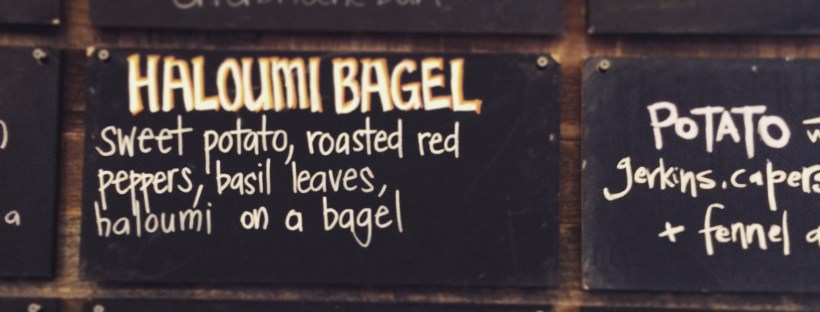 HALOUMI BAGEL
sweet potato, roasted red
peppers, basil leaves,
haloumi on a bagel
POTATO
Jerkins, capers
+ fennel
a